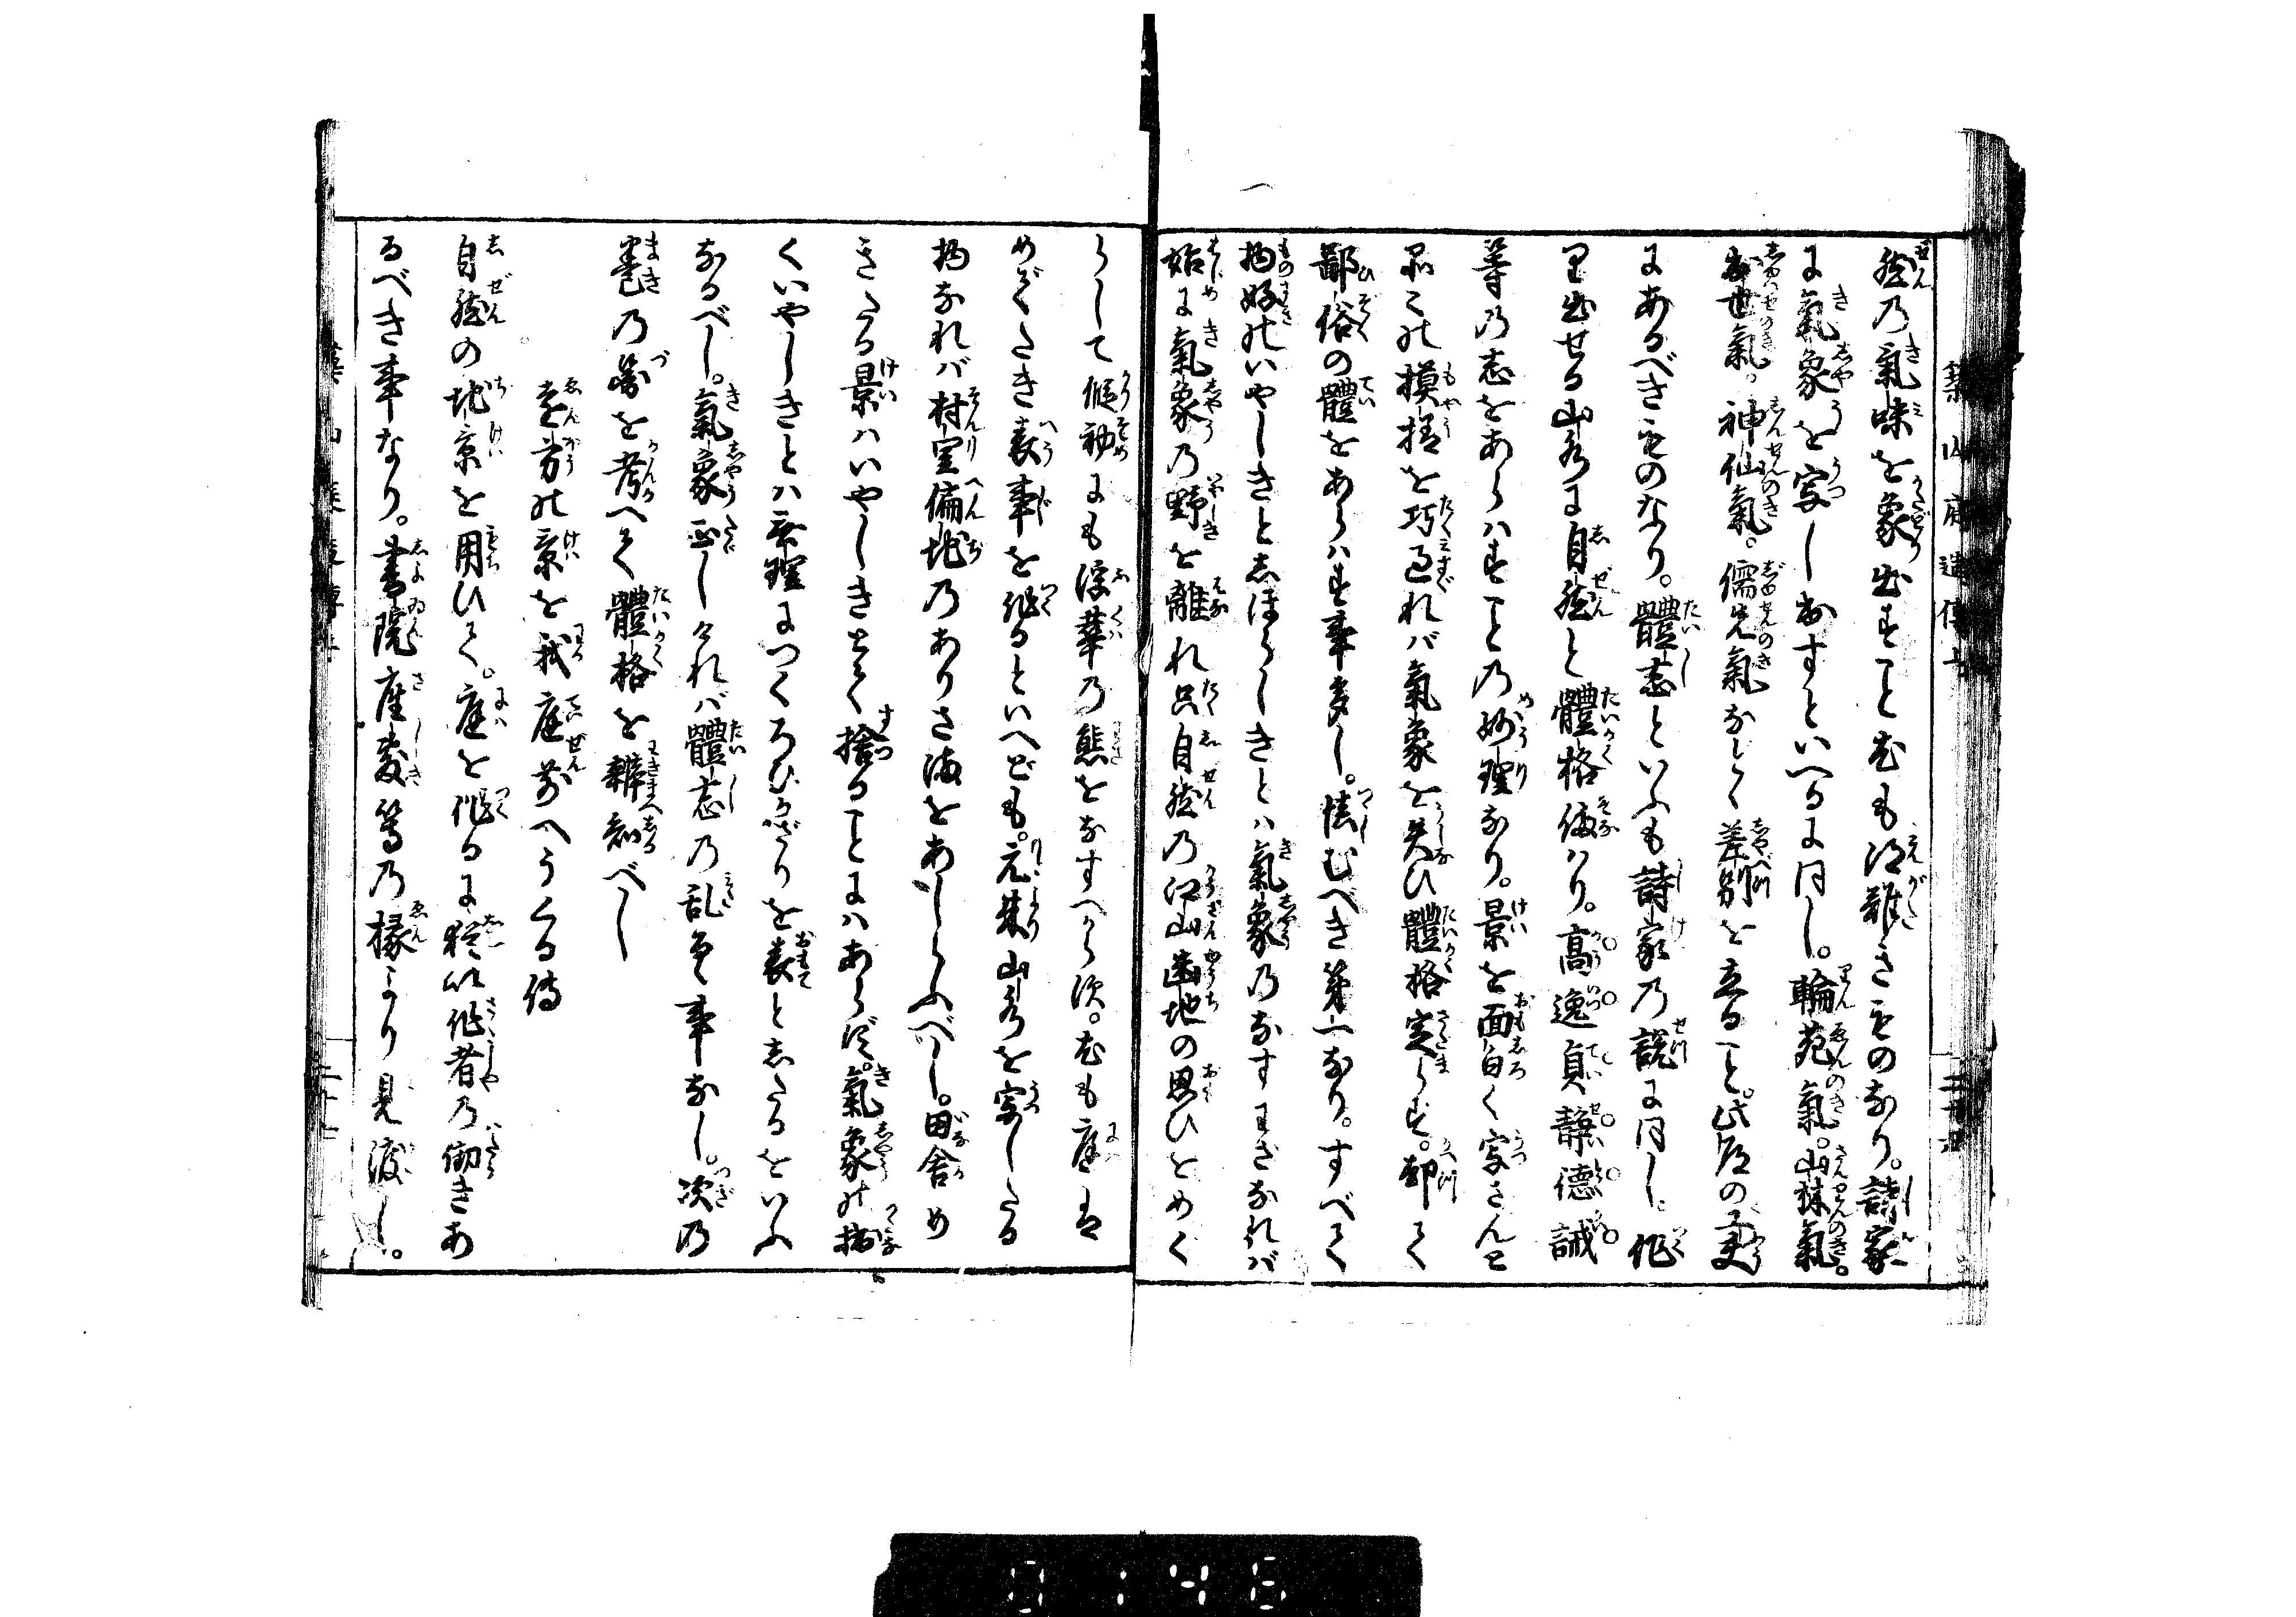 築山庭造伝上
然乃氣味を象出すこと尤も得難きものなり。詩家
に氣象を寫し出すといへるに同し。輪苑氣。山林氣。
出世氣。神仙氣。儒先氣なとゝ差別を立ること。此庭の更
にあるべきものなり。體志といふも詩家乃説に同し。作
り出せる山水に自然と體格備ハり。高逸貞靜德誠
等の志をあらハすこと乃妙理なり。景を面白く寫さんと
品々の摸様を巧過れバ氣象を失ひ體格定らす。却て
鄙俗の體をあらハす事多し。慎むべき第一なり。すべて
物好のいやしきとしほらしきとハ氣象乃なすわざなれバ
始に氣象乃野を離れ只自然乃江山幽地の思ひとめく
らして假初にも浮華乃態をなすへからす。尤も庭は
めでたき表事を作るといへども。元来山水を寫したる
物なれバ村里偏地乃ありさまをあしらふべし。田舎め
きたる景ハいやしきとて捨ることにハあらず。氣象の拙
くいやしきとハ無理につくろひかざりを表としたるをいふ
なるべし。氣象正しけれバ體志乃乱るゝ事なし。次乃
巻乃圖を考へて體格を辨知べし
遠方の景を我庭前へうくる傳
自然の地景を用ひて。庭を作るに猶以作者乃働きあ
るべき事なり。書院座敷等乃椽より見渡し。